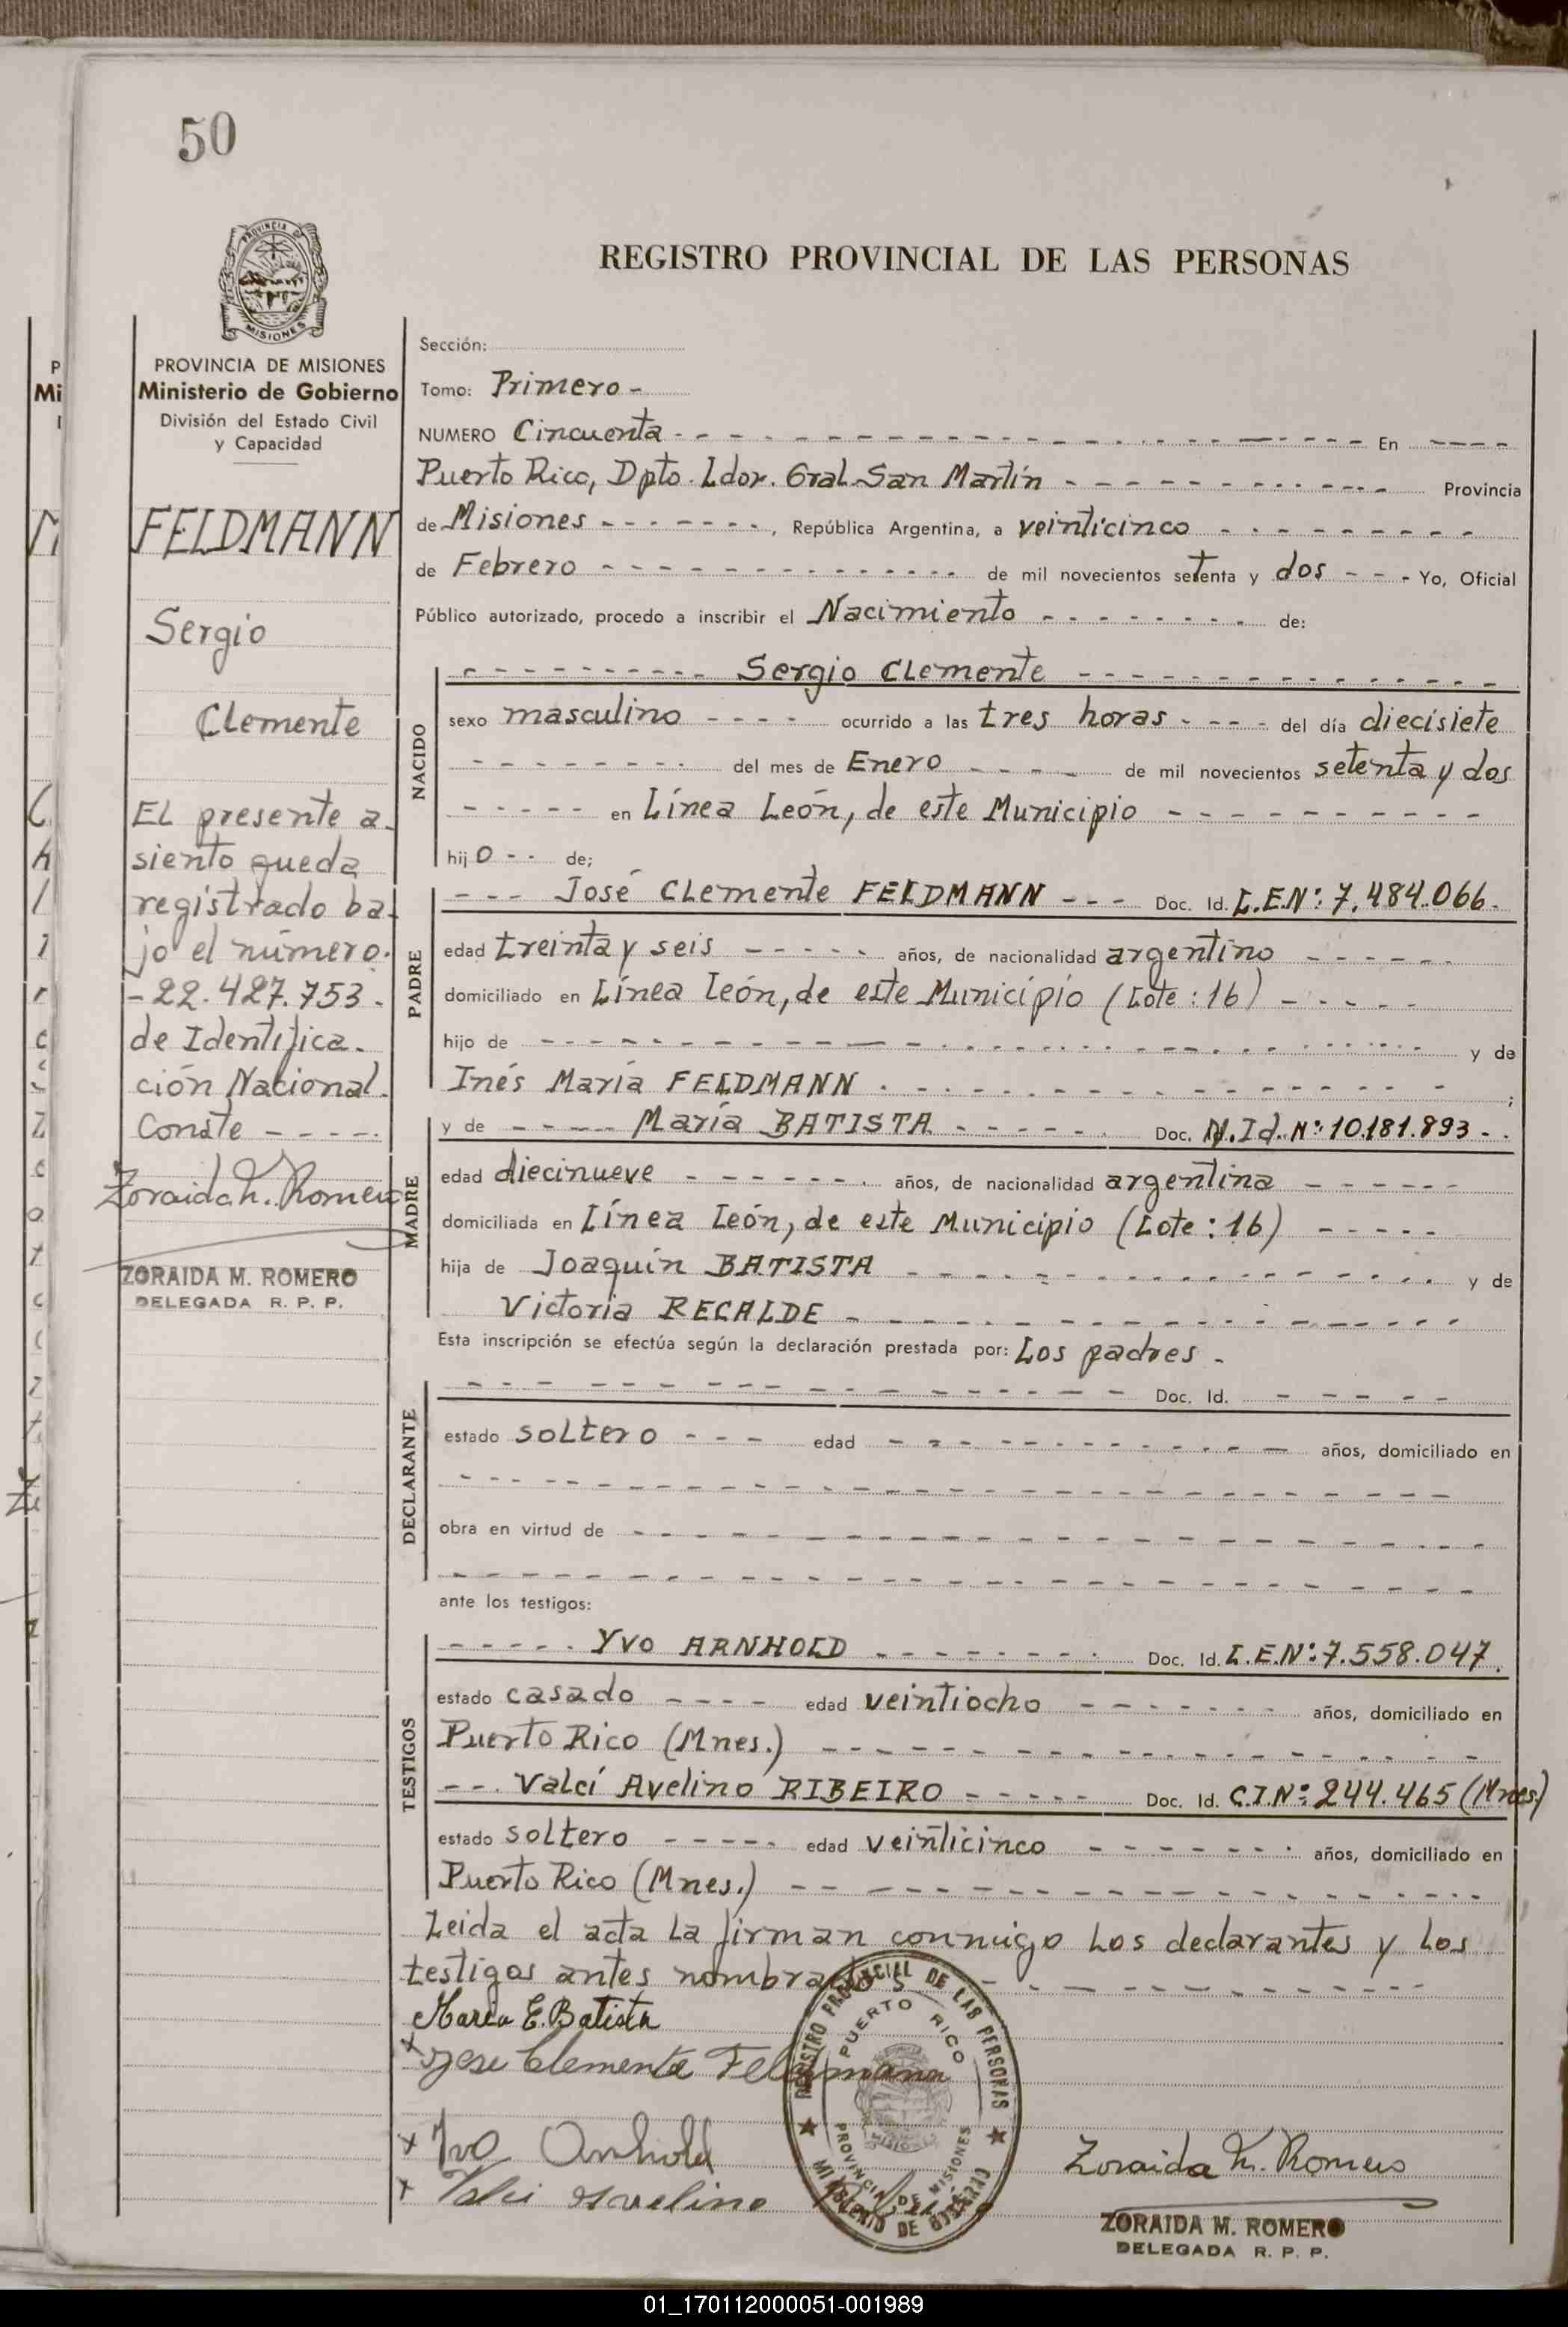 50
PROVINCIA DE
MISIONES
REGISTRO PROVINCIAL DE LAS PERSONAS
PROVINCIA DE MISIONES
Ministerio de Gobierno
División del Estado Civil
y Capacidad
FELDMANN
Sergio
Clemente
El presente a-
siento queda
registrado ba-
jo el número.
-22.427.753.
de Identifica-
ción Nacional.
Conste - - - -
Zoraida M. Romero
ZORAIDA M. ROMERO
DELEGADA R. P. P.
Sección:
Tomo: Primero -
NUMERO Cincuenta - - - En - - - -
Puerto Rico, Dpto. Ldor. Gral. San Martín - - - Provincia
de Misiones - - - , República Argentina, a veinticinco - - -
de Febrero - - - de mil novecientos setenta y dos - - - Yo, Oficial
Público autorizado, procedo a inscribir el Nacimiento - - - de:
NACIDO
- - - Sergio Clemente - - -
sexo masculino - - - - ocurrido a las tres horas - - - - del día diecisiete
- - - del mes de Enero - - - de mil novecientos setenta y dos
- - - - - en Línea León, de este Municipio - - -
hijo - - de;
PADRE
- - - José Clemente FELDMANN - - - Doc. Id. L.E.Nº: 7.484.066.
edad treinta y seis - - - años, de nacionalidad argentino - - -
domiciliado en Línea León, de este Municipio (Lote: 16) - - -
hijo de - - - y de
Inés María FELDMANN - - - ;
MADRE
y de - - - María BATISTA - - - Doc. N.Id. Nº: 10.181.893 - .
edad diecinueve - - - años, de nacionalidad argentina - - -
domiciliada en Línea León, de este Municipio (Lote: 16) - - -
hija de Joaquín BATISTA - - - y de
Victoria RECALDE - - -
Esta inscripción se efectúa según la declaración prestada por: Los padres -
DECLARANTE
- - - Doc. Id. - - -
estado soltero - - - edad - - - años, domiciliado en
- - -
obra en virtud de - - -
- - -
ante los testigos:
TESTIGOS
- - - Yvo ARNHOLD - - - Doc. Id. L.E.Nº: 7.558.047.
estado casado - - - - edad veintiocho - - - años, domiciliado en
Puerto Rico (Mnes.) - - -
- - . Valcí Avelino RIBEIRO - - - Doc. Id. C.I.Nº: 244.465 (Mnes)
estado soltero - - - edad veinticinco - - - años, domiciliado en
Puerto Rico (Mnes.) - - -
Leida el acta la firman conmigo los declarantes y los
testigos antes nombrados - - -
Maria E. Batista
x Jose Clemente Feldmann
x Ivo Arnhold
x Valci Avelino
REGISTRO PROVINCIAL DE LAS PERSONAS
PUERTO RICO
MISIONES
PROVINCIA DE MISIONES
MINISTERIO DE GOBIERNO
Zoraida M. Romero
ZORAIDA M. ROMERO
DELEGADA R. P. P.
01_170112000051-001989